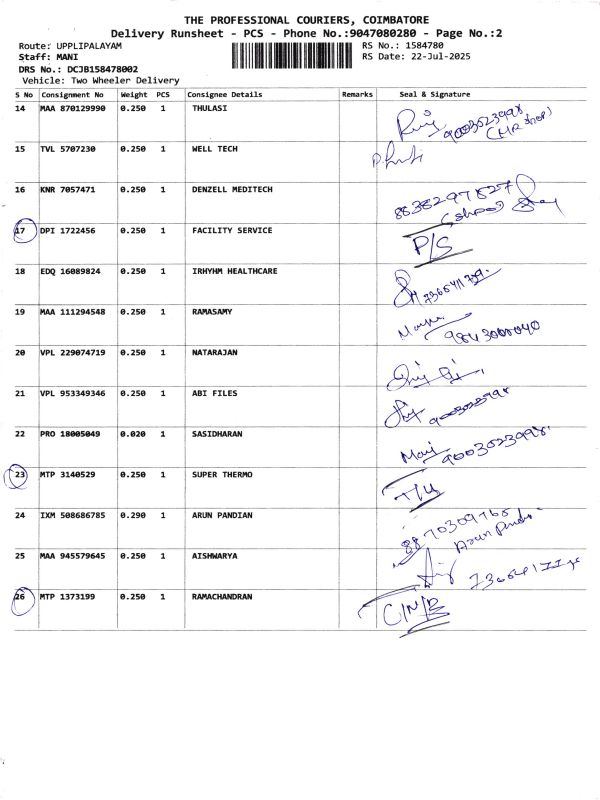 THE PROFESSIONAL COURIERS, COIMBATORE
Delivery Runsheet - PCS - Phone No.:9047080280 - Page No.:2
Route: UPPLIPALAYAM RS No.: 1584780
Staff: MANI RS Date: 22-Jul-2025
DRS No.: DCJB158478002
Vehicle: Two Wheeler Delivery
S No Consignment No Weight PCS Consignee Details Remarks Seal & Signature
14 MAA 870129990 0.250 1 THULASI
15 TVL 5707230 0.250 1 WELL TECH
16 KNR 7057471 0.250 1 DENZELL MEDITECH
8838297827
17 DPI 1722456 0.250 1 FACILITY SERVICE P/S
18 EDQ 16089824 0.250 1 IRHYHM HEALTHCARE
19 MAA 111294548 0.250 1 RAMASAMY
20 VPL 229074719 0.250 1 NATARAJAN
21 VPL 953349346 0.250 1 ABI FILES
22 PRO 18005049 0.020 1 SASIDHARAN
Mani 9003023998
23 MTP 3140529 0.250 1 SUPER THERMO
24 IXM 508686785 0.290 1 ARUN PANDIAN
8870309768
25 MAA 945579645 0.250 1 AISHWARYA
26 MTP 1373199 0.250 1 RAMACHANDRAN C/N/R